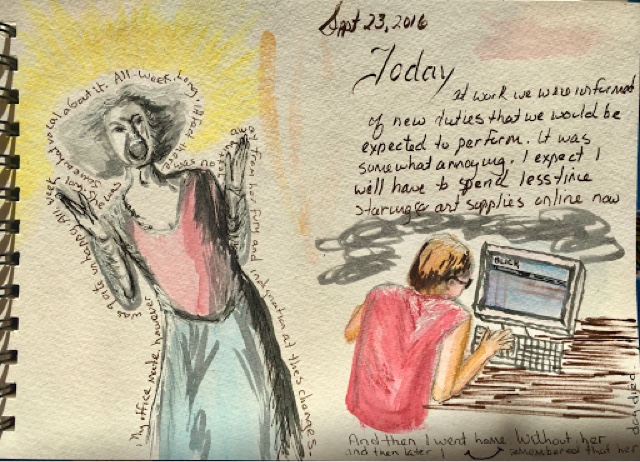 Sept 23, 2016
Today
at work we were informed
of new duties that we would be
expected to perform. It was
somewhat annoying. I expect I
will have to spend less time
staring at art supplies online now
BLICK
My office mate, however
was quite unhappy. All week
long
somewhat vocal about it. All. Week. Long.
was no
away from her fury and indignation at these changes.
And then I went home. Without her.
and then later I remembered that her